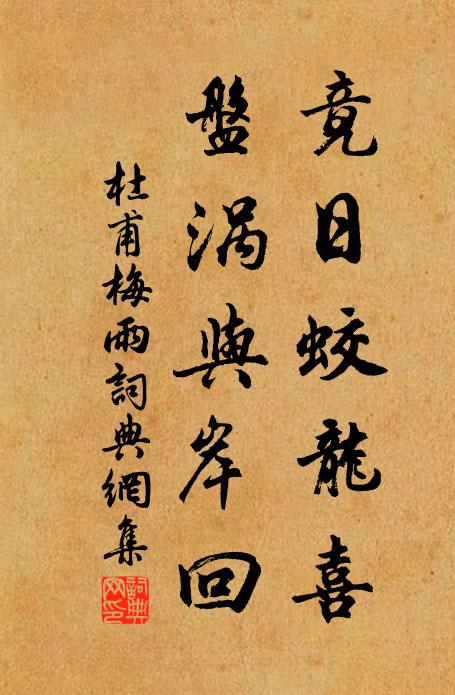 竟日蛟龍喜
盤渦與岸回
杜甫梅雨詞典網集
詞典網印